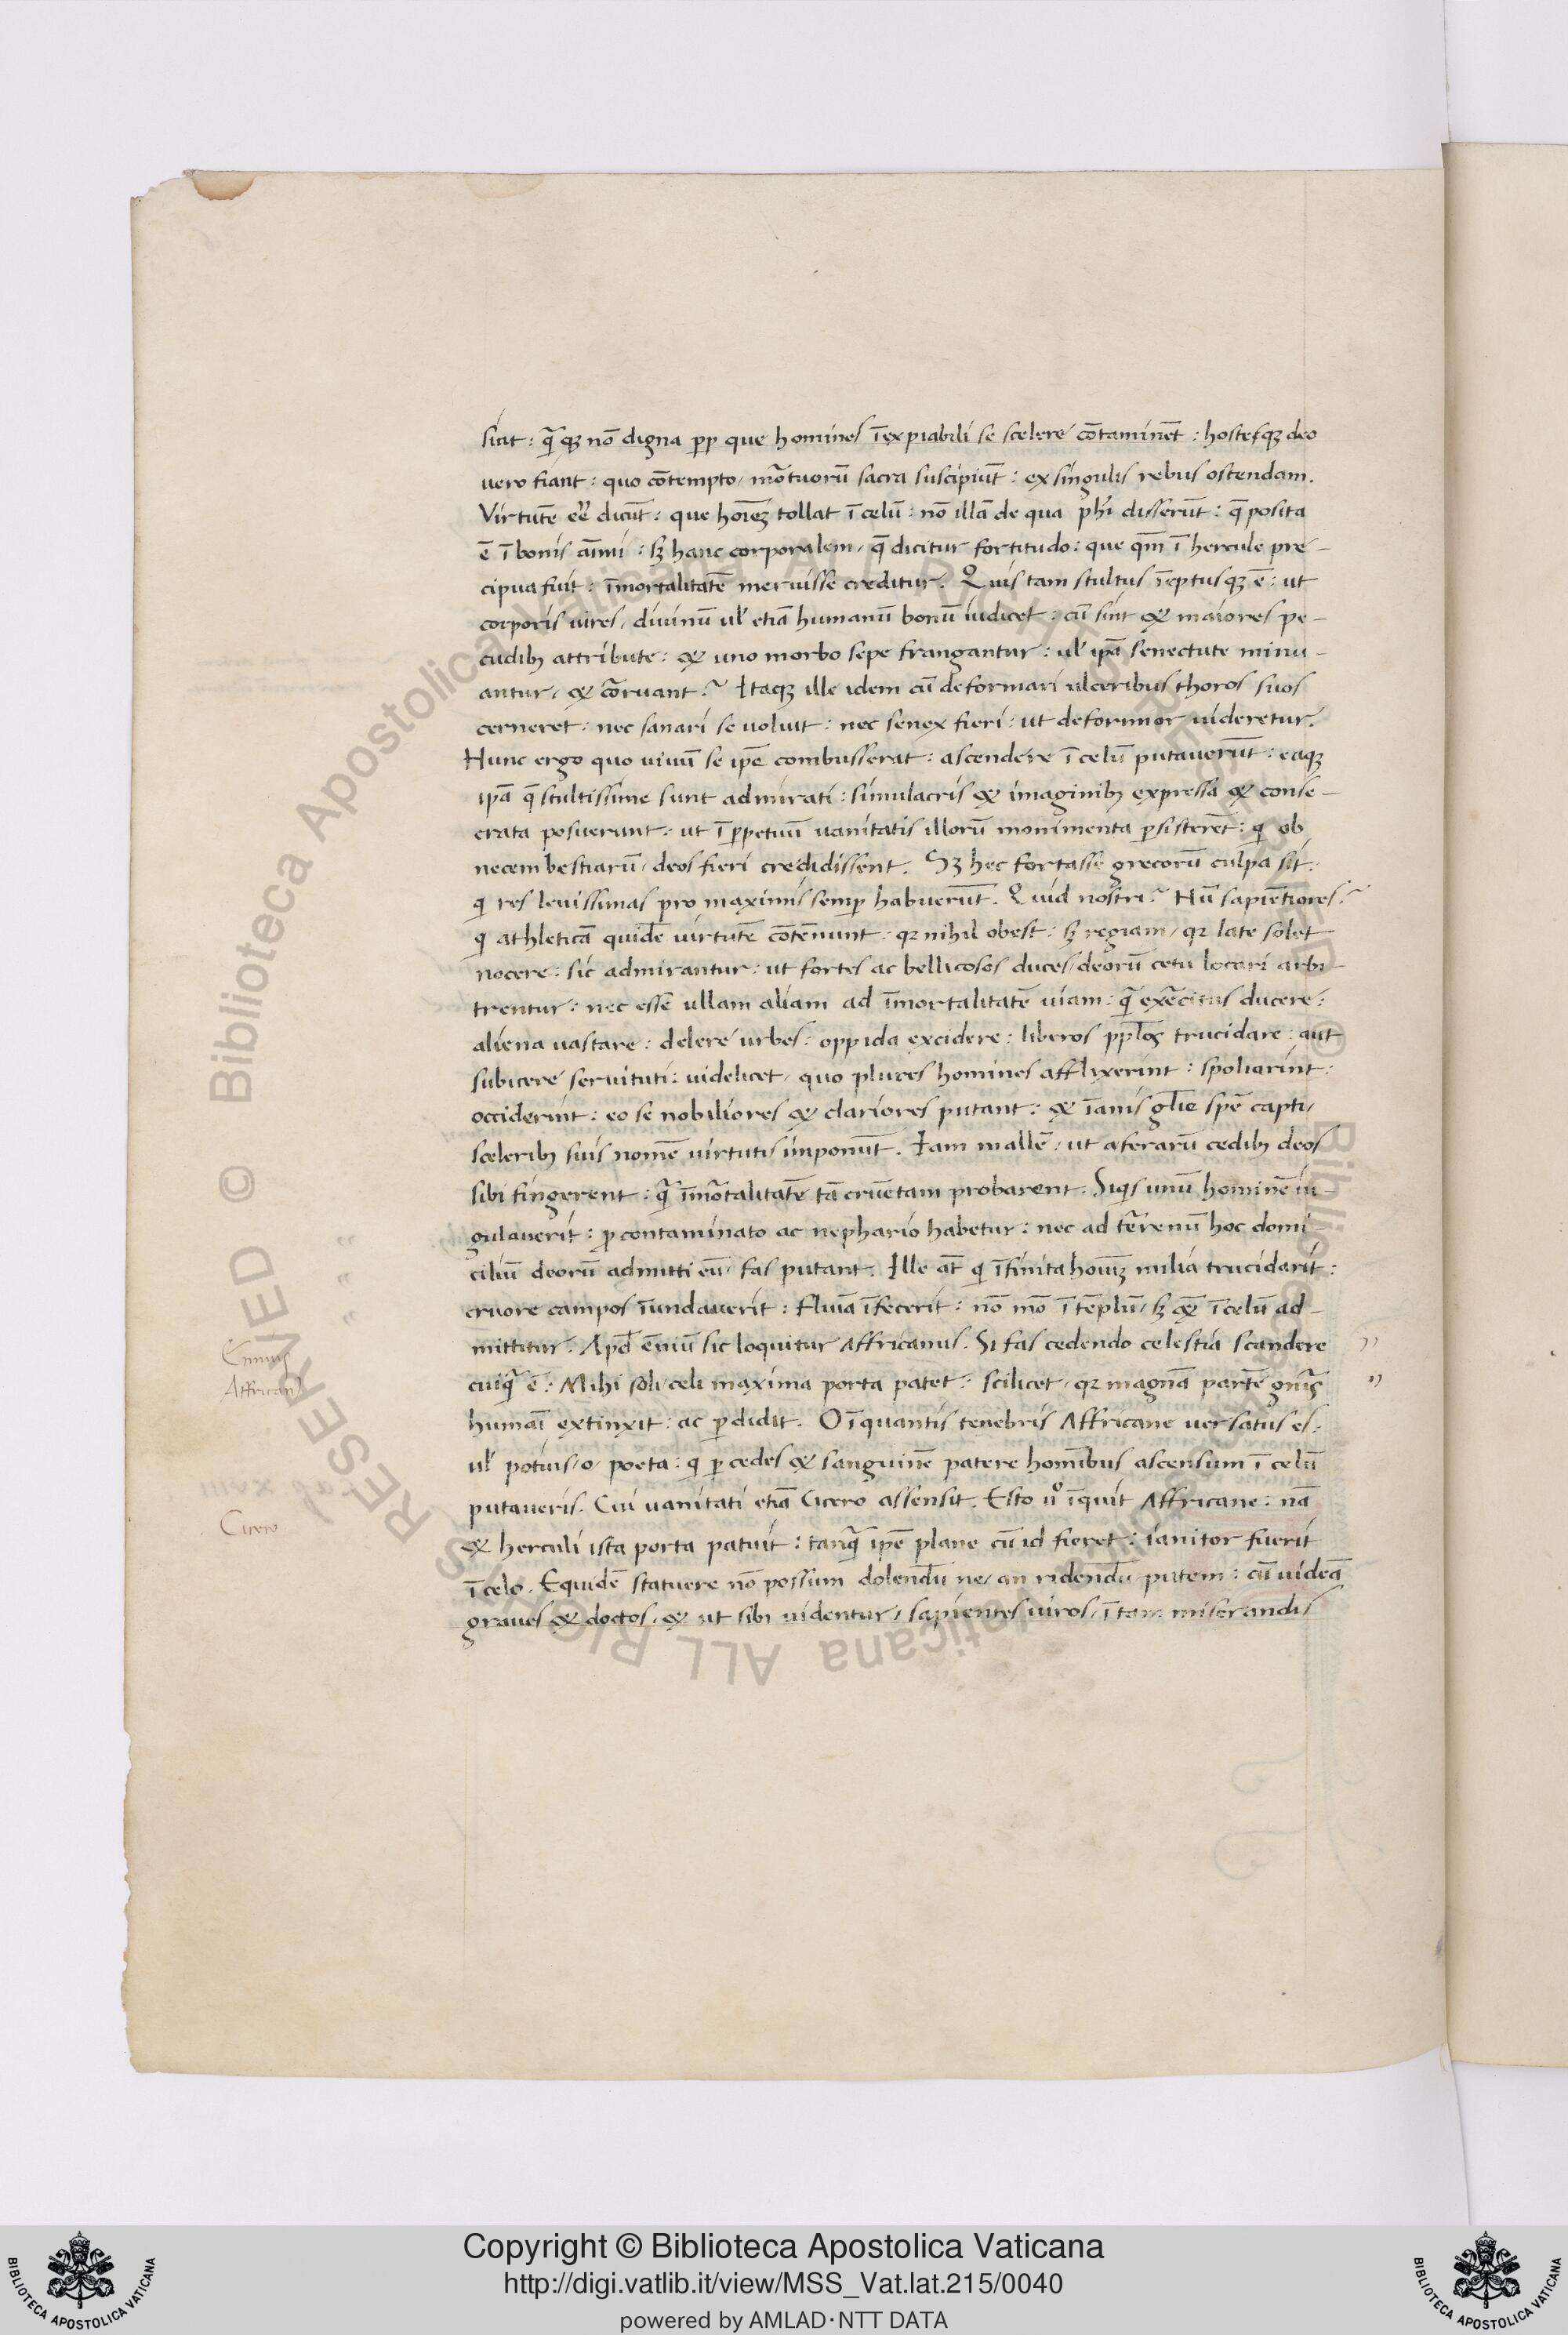 sint: q̃ꝫ nō digna ꝓp que homines īexpiabili se scelere cōtaminēt: hostesqꝫ deo
uero fiant: quo cōtempto, mr̄tuorū sacra suscipiūt: ex singulis rebus ostendam.
Virtutē eē̄ dicūt: que hoīeꝫ tollat ī celū: nō illā de qua phī disserūt: q̄ posita
ē ī bonis aīmi: sꝫ hanc corporalem, q̄ dicitur fortitudo: que qm̄ ī hercule pre-
cipua fuit: īmortalitatē meruisse creditur. Quis tam stultus īeptusqꝫ ē: ut
corporis uires, diuinū ul' etiā humanū bonū iudicet: cū sint & maiores pe-
cudibꝫ attribute: & uno morbo sepe frangantur: ul' ipā senectute minu-
antur, & cōruant? Itaqꝫ ille idem cū deformari ulceribus thoros suos
cerneret: nec sanari se uoluit: nec senex fieri: ut deformior uideretur.
Hunc ergo quo uiuū se ipē combusserat: ascendere ī celū putauerūt: eaqꝫ
ipā q̄ stultissime sunt admirati: simulacris & imaginibꝫ expressa & conse-
crata posuerunt: ut ī ꝑpetuū uanitatis illorū monimenta ꝑsisterēt: qi ob
necem bestiarū, deos fieri credidissent. Sꝫ hec fortasse grecorū culpa sit.
qi res leuissimas pro maximis semꝑ habuerūt. Quid nostri? Nū sapiētiores?
qi athleticā quidē uirtutē cōtēnunt: qꝛ nihil obest: sꝫ regiam, qꝛ late solet
nocere: sic admirantur: ut fortes ac bellicosos duces, deorū cetu locari arbi-
trentur: nec esse ullam aliam ad īmortalitatē uiam: q̃ exercitus ducere:
aliena uastare: delere urbes: oppida excidere: liberos ppl'os trucidare: aut
subicere seruituti: uidelicet, quo plures homines afflixerint: spoliarint:
occiderint: eo se nobiliores & clariores putant: & īanis gl'ie spē capti,
sceleribꝫ suis nomē uirtutis imponūt. Iam mallē, ut a ferarū cedibꝫ deos
sibi fingerent: q̃ īmōtalitatē tā cruētam probarent. Siqis unū hominē iu-
gulauerit: ꝓ contaminato ac nephario habetur: nec ad tēr̄renū hoc domi-
ciliū deorū admitti eū, fas putant. Ille at̄ qi īfinita hoīuꝫ milia trucidarit:
cruore campos īundauerit: fluīa īfecerit: nō mō ī tēplū, sꝫ & ī celū ad-
mittitur. Apd' ēniū sic loquitur Affricanus. Si fas cedendo celestia scandere
cuiq̃ ē: Mihi soli celi maxima porta patet: scilicet, qꝛ magnā partē gn̄is
humaī extinxit: ac ꝑdidit. O ī quantis tenebris Affricane uersatus es.
ul' potius, o, poeta: qi ꝑ cedes & sanguinē patere homībus ascensum ī celū
putaueris. Cui uanitati etiā Cicero assensit. Esto uͦ īquit Affricane: nā
& herculi ista porta patuit: tanq̃ ipē plane cū id fieret: ianitor fuerit
ī celo. Equidē statuere nō possum dolendū ne, an ridendū putem: cū uideā
graues & doctos, & ut sibi uidentur, sapientes uiros, ī tam miserandis
Ennius
Affrican9
Cicero
Copyright © Biblioteca Apostolica Vaticana
http://digi.vatlib.it/view/MSS_Vat.lat.215/0040
powered by AMLAD·NTT DATA
BIBLIOTECA APOSTOLICA VATICANA
BIBLIOTECA APOSTOLICA VATICANA